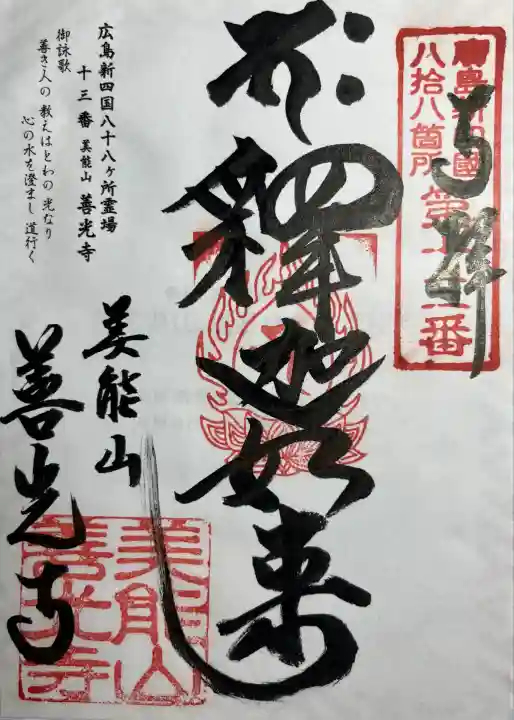 廣島新四國
八拾八箇所第十三番
奉拝
釋迦如来
広島新四国八十八ヶ所霊場
十三番 美能山 善光寺
御詠歌
善き人の 教えはとわの 光なり
心の水を 澄まし 道行く
美能山
善光寺
美能山
善光寺